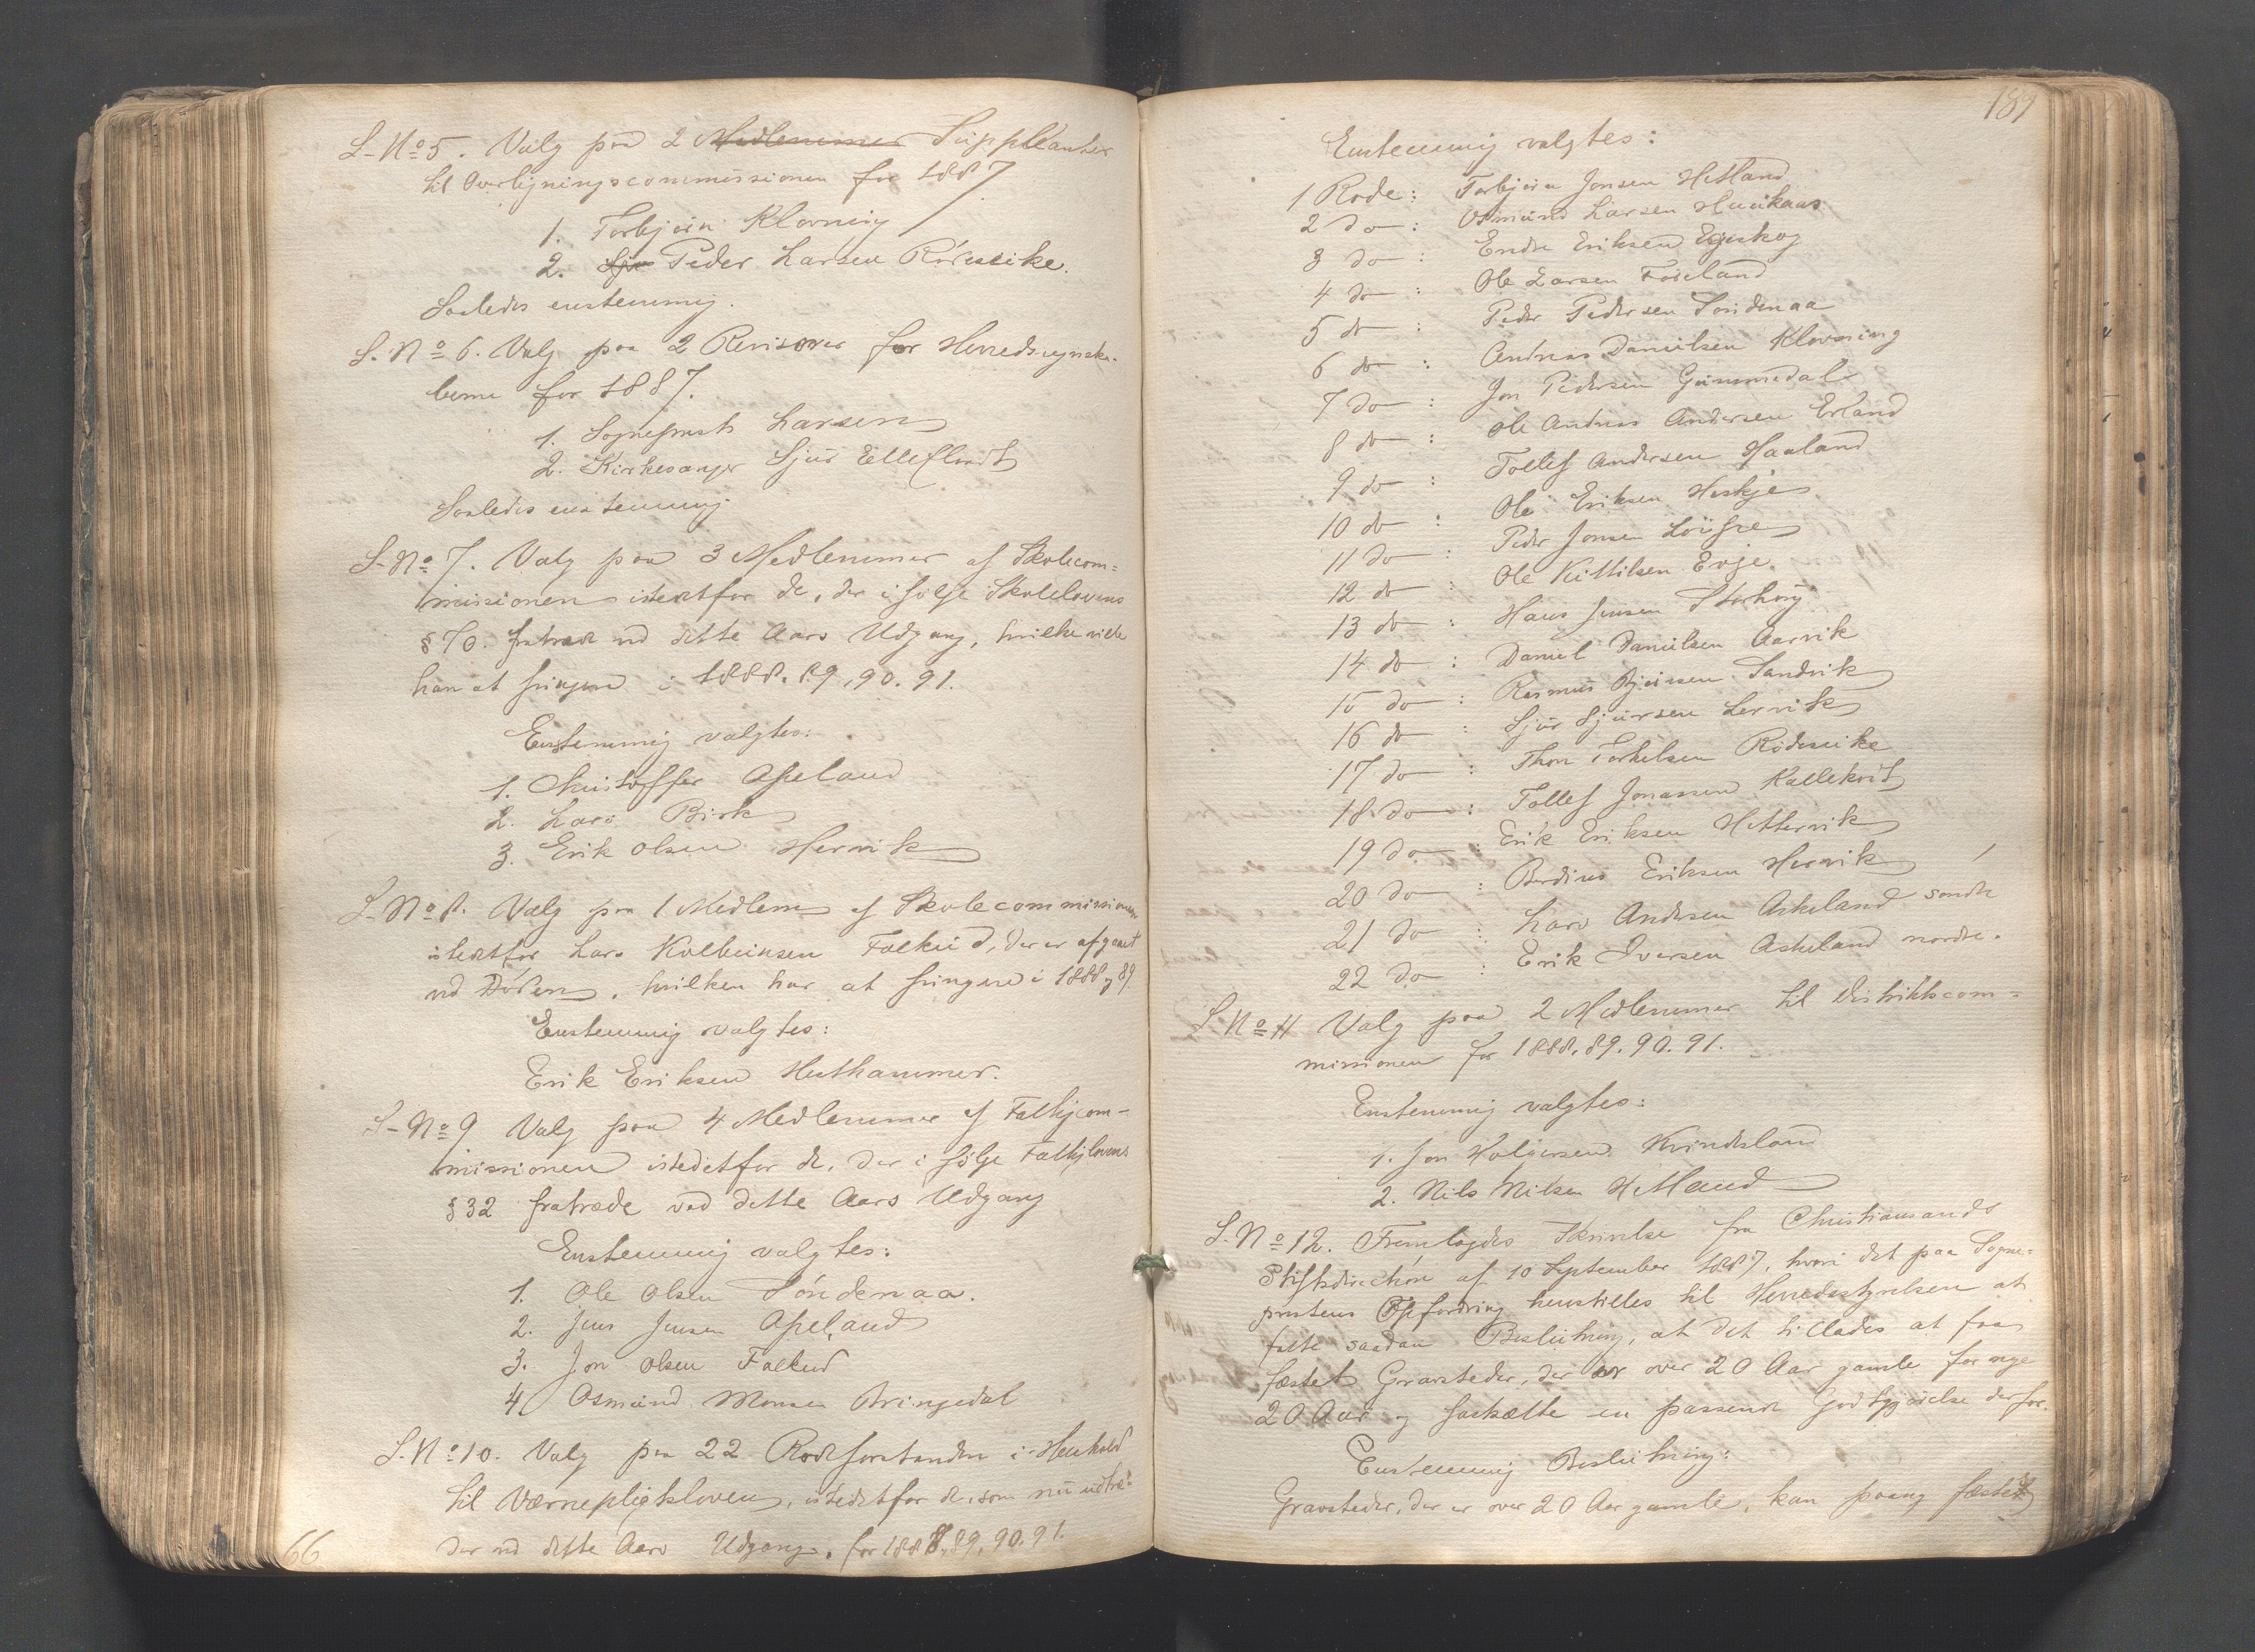 S-No 5. Valg paa 2 Medlemmer Suppleanter
til Overligningscommissionen for 1887
1. Torbjørn Klovning
2. Peder Larsen Rødseike.
Saaledes enstemmig.
S. No 6. Valg paa 2 Revisorer for Herredsregnska-
berne for 1887.
1. Sogneprest Larsen
2. Kirkesanger Sjur Elleflodt
Saaledes enstemmig
S-No 7. Valg paa 3 Medlemmer af Skolecom=
missionen istedetfor de, der ifølge Skolelovens
§ 70. fratræde ved dette Aars Udgang, hvilke
har at fungere i 1888. 89, 90. 91.
Enstemmig valgtes:
1. Christoffer Apeland
2. Lars Birk
3. Erik Olsen Hervik
S-No 8. Valg paa 1 Medlem af Skolecommissionen
istedetfor Lars Kolbeinsen Falkeid, der er afgaaet
ved Døden, hvilken har at fungere i 1888 og 89
Enstemmig valgtes:
Erik Eriksen Hesthammer.
S-No 9 Valg paa 4 Medlemmer af Fattigcom-
missionen istedetfor de, der i følge Fattiglovens
§ 32 fratræde ved dette Aars Udgang
Enstemmig valgtes:
1. Ole Olsen Søndenaa.
2. Jens Jensen Apeland
3. Jon Olsen Falkeid
4 Osmund Monsen Bringedal
S. No 10. Valg paa 22 Rodeforstandere i Henhold
til Værnepligtsloven, istedetfor de, som nu udtræ-
der ved dette Aars Udgang, for 1888, 89, 90. 91.
66
189
Enstemmig valgtes:
1 Rode: Torbjørn Jonsen Hetland
2 do : Osmund Larsen
3 do : Endre Eriksen Egeskog
4 do : Ole Larsen Føseland
5 do : Peder Pedersen Søndenaa
6 do : Andreas Danielsen Klovning
7 do : Jon Pedersen Gummedal
8 do : Ole Andreas Andersen Erland
9 do : Tollef Andersen Haaland
10 do : Ole Eriksen Heskje
11 do : Peder Jonsen
12 do : Ole Kittilsen Evje.
13 do : Hans Jensen Storhoug
14 do : Daniel Danielsen Aarvik
15 do : Rasmus Bjørnsen Sandvik
16 do : Sjur Sjursen Lervik
17 do : Thore Torkelsen Rødseike
18 do : Tollef Jonassen Kallekodt
19 do : Erik Eriksen Hettervik
20 do : Berdines Eriksen Hervik
21 do : Lars Andersen Askeland søndre
22 do : Erik Iversen Askeland nordre.
S. No 11 Valg paa 2 Medlemmer til Distriktscom=
missionen for 1888. 89. 90. 91.
Enstemmig valgtes:
1. Jon Holgersen Kvindesland
2. Nils Nilsen Hetland
S. No 12. Fremlagdes Skrivelse fra Christiansands
Stiftsdirection af 10 September 1887, hvori det paa Sogne=
prestens Opfordring henstilles til Herredsstyrelsen at
fatte saadan Beslutning, at det tillades at faa
fæstet Gravsteder, der er over 20 Aar gamle for nye
20 Aar og fastsætte en passende Godtgjørelse derfor.
Enstemmig Beslutning:
Gravsteder, der er over 20 Aar gamle, kan paany fæstes